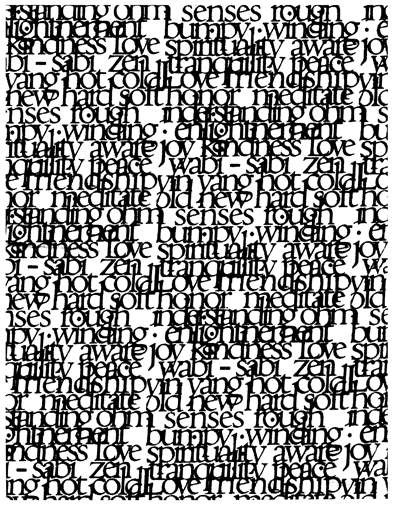 understanding ohm senses rough ind
enlightenment bumpy winding · en
kindness love spirituality aware joy
bi - sabi zen tranquility peace wa
yang hot cold love friendship yin
new hard soft honor meditate old
nses rough understanding ohm s
mpy winding · enlightenment bu
irituality aware joy kindness love sp
nquility peace wabi - sabi zen tra
e friendship yin yang hot cold Lo
nor meditate old new hard soft ho
rstanding ohm senses rough ind
lightenment bumpy winding · en
kindness love spirituality aware joy
bi - sabi zen tranquility peace wa
ang hot cold love friendship yin
new hard soft honor meditate old
nses rough understanding ohm se
mpy winding · enlightenment bu
ituality aware joy kindness love spi
quility peace wabi - sabi zen tran
friendship yin yang hot cold Lov
or meditate old new hard soft hon
standing ohm senses rough inde
ghtenment bumpy winding · en
indness love spirituality aware joy
i - sabi zen tranquility peace wa
ng hot cold love friendship yin